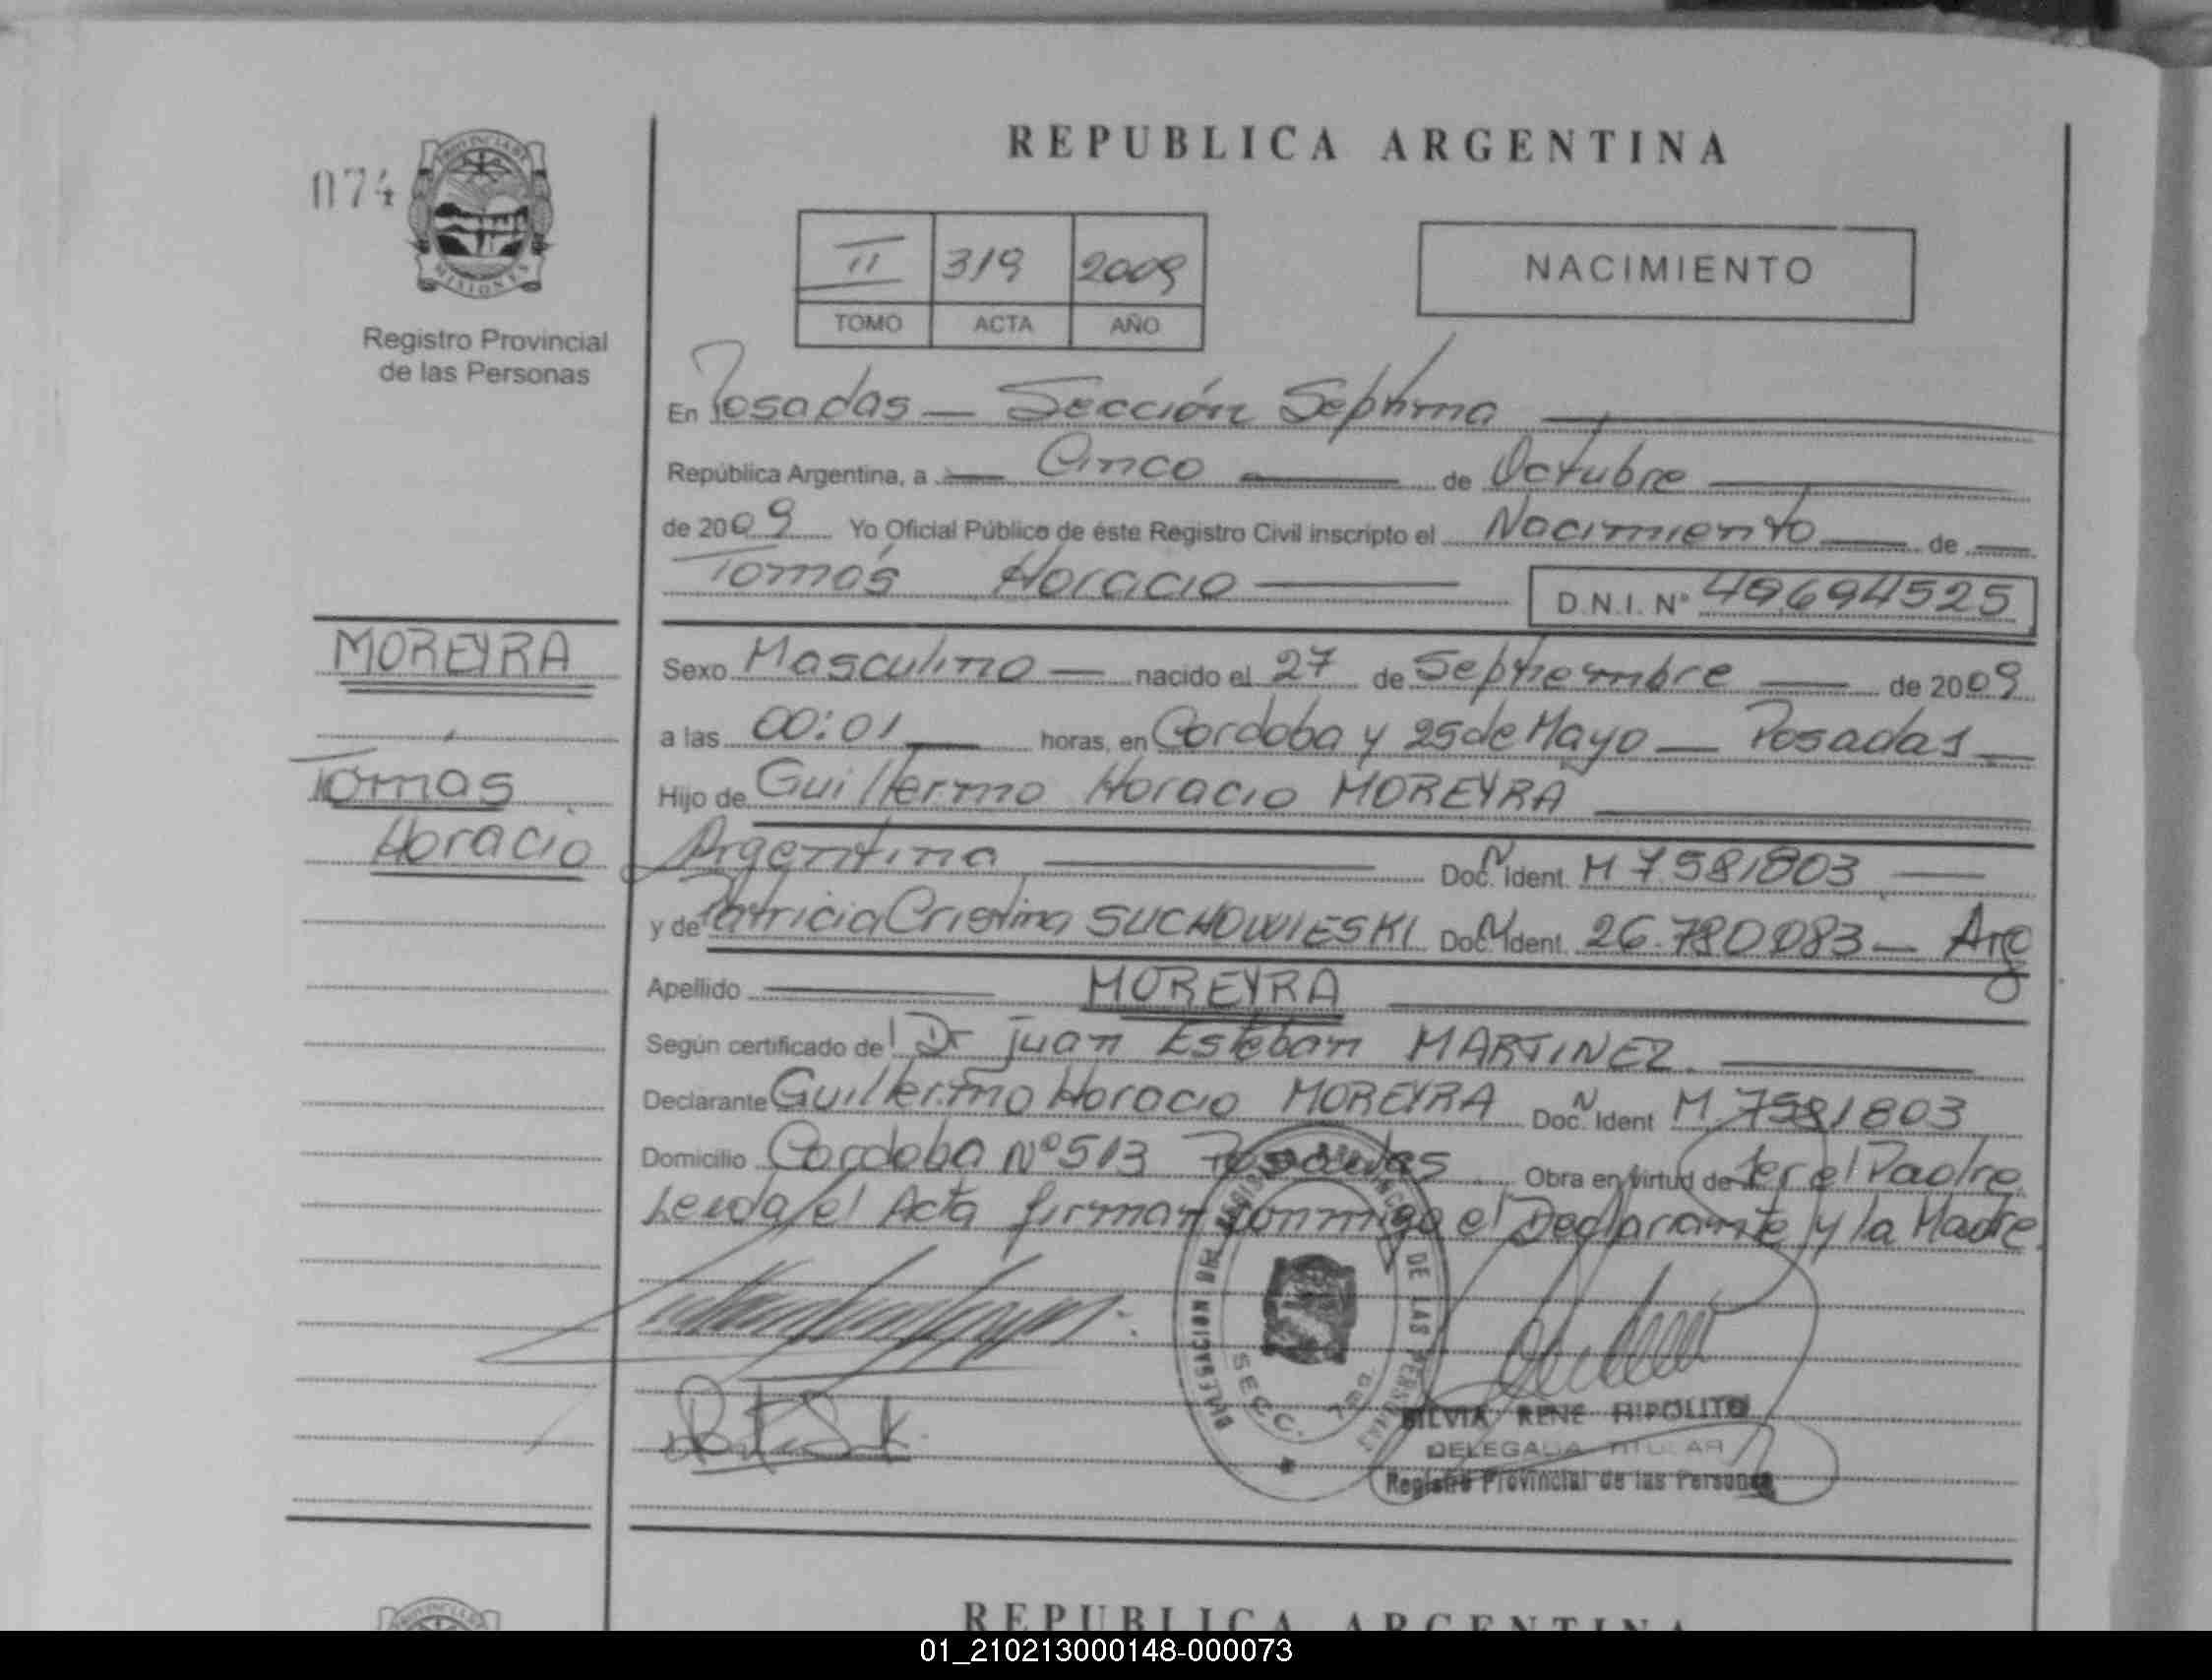 REPUBLICA ARGENTINA
074
PROVINCIA DE
MISIONES
II 319 2009
TOMO ACTA AÑO
NACIMIENTO
Registro Provincial
de las Personas
En Posadas — Sección Septima
República Argentina, a — Cinco — de Octubre
de 2009 Yo Oficial Público de éste Registro Civil inscripto el Nacimiento — de —
Tomás Horacio — D.N.I. Nº 49694525
MOREYRA
Sexo Masculino — nacido el 27 de Septiembre — de 2009
a las 00:01 — horas, en Cordoba y 25 de Mayo — Posadas —
Tomas
Hijo de Guillermo Horacio MOREYRA
Horacio
Argentina — Doc. Ident. M 7581803 —
y de Patricia Cristina SUCHOWIESKI Doc. Ident. 26.780083 — Arg
Apellido — MOREYRA
Según certificado del Dr Juan Esteban MARTINEZ.
Declarante Guillermo Horacio MOREYRA Doc. Ident M 7581803
Domicilio Cordoba Nº 513 Posadas Obra en virtud de ser el Padre
Leida el Acta firman conmigo el Declarante y la Madre
DELEGACION DEL DE LAS PERSONAS
SECC.
SILVIA RENE HIPOLITO
DELEGADA TITULAR
Registro Provincial de las Personas
PROVINCIA DE
REPUBLICA ARGENTINA
01_210213000148-000073